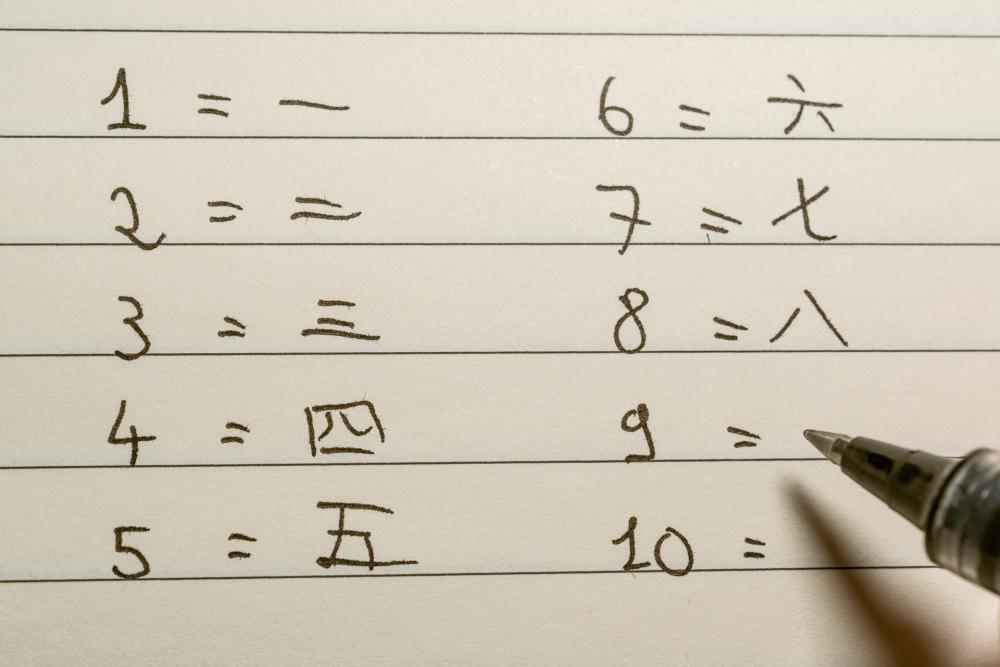 1 = 一
2 = 二
3 = 三
4 = 四
5 = 五
6 = 六
7 = 七
8 = 八
9 =
10 =